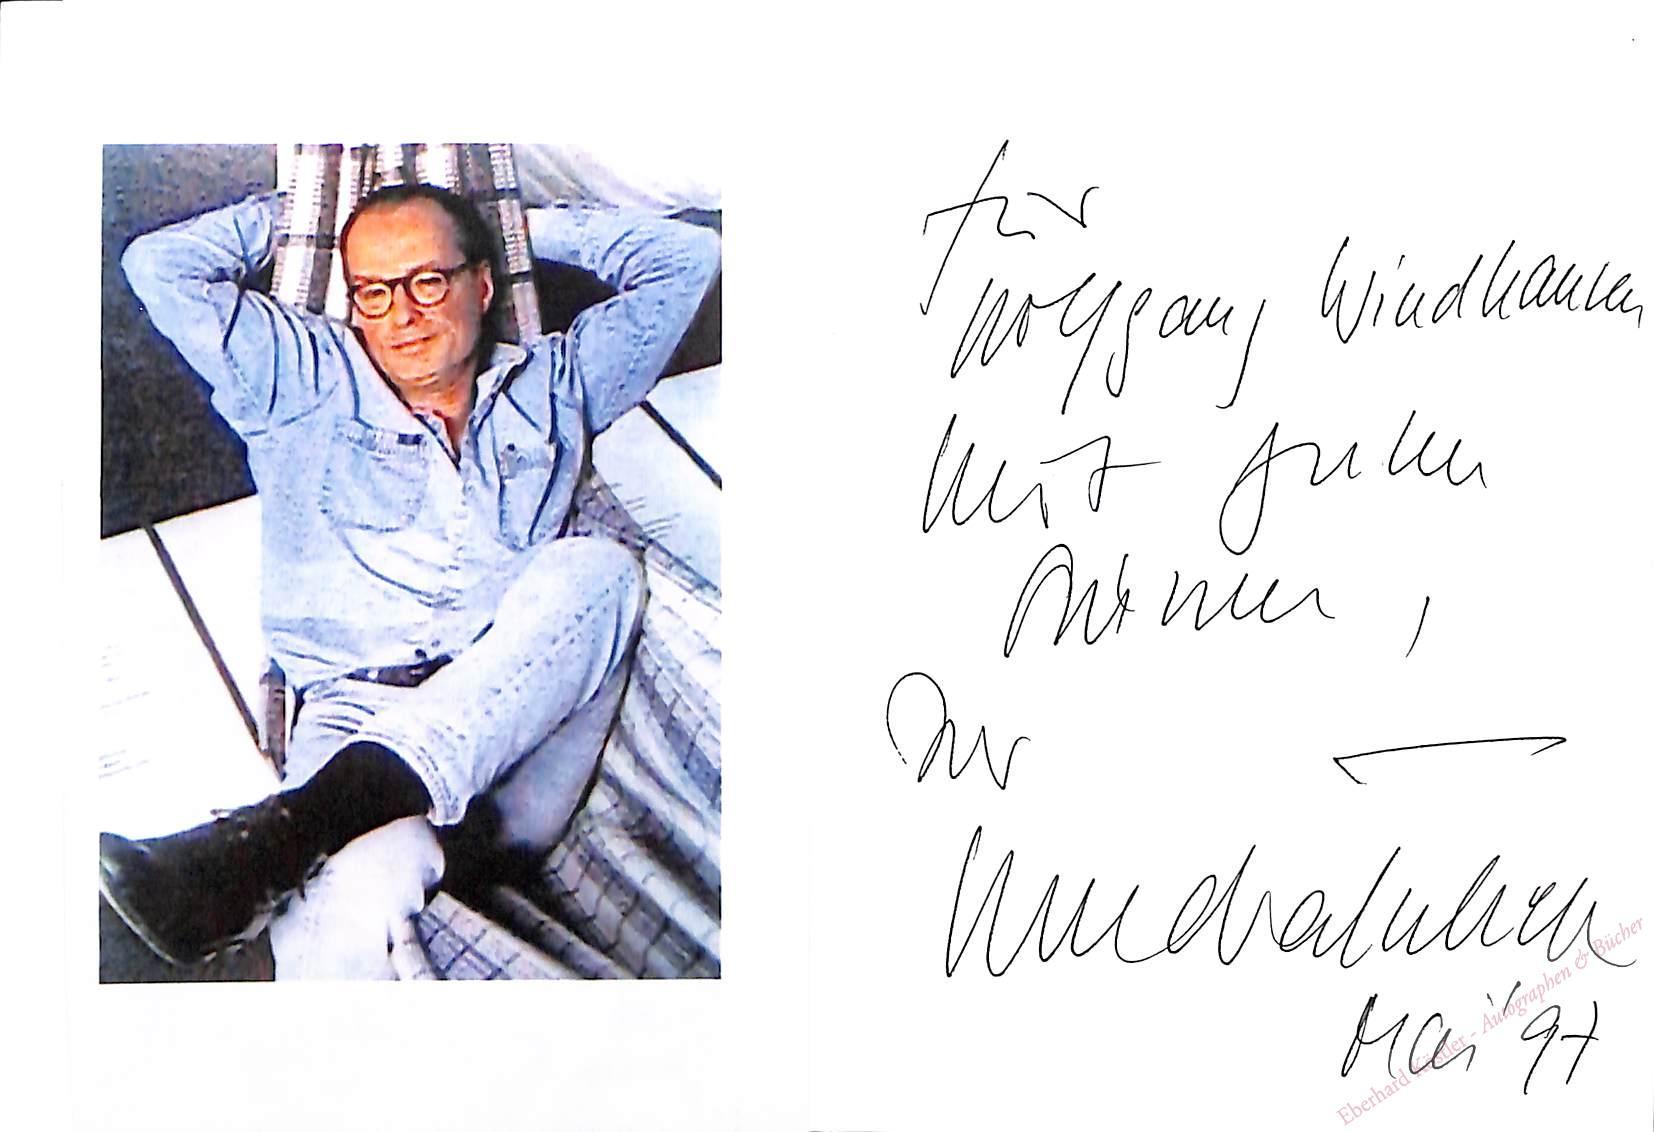 für
Wolfgang Windhausen
mit guten
,
Ihr
Mai 97
Eberhard Köstler - Autographen & Bücher